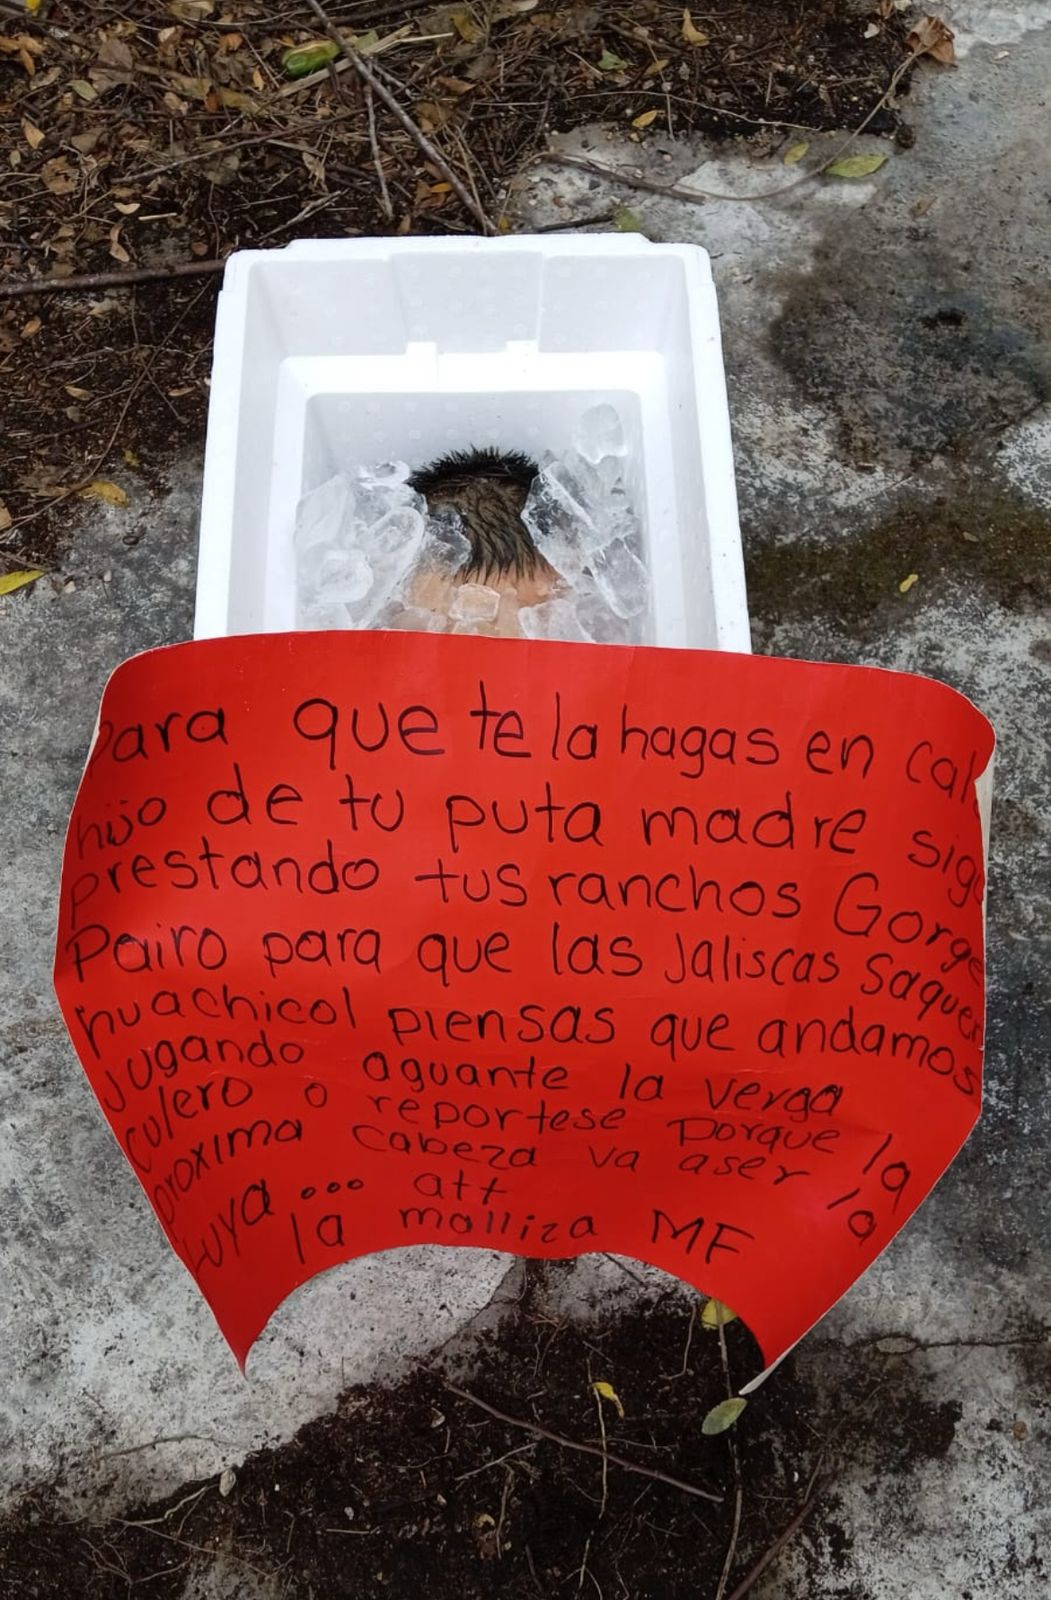 Para que te la hagas en
hijo de tu puta madre
prestando tus ranchos Gorge
Pairo para que las Jaliscas Saquen
huachicol piensas que andamos
Jugando aguante la verga
culero o reportese Porque la
proxima cabeza va aser la
tuya... att
la malliza MF